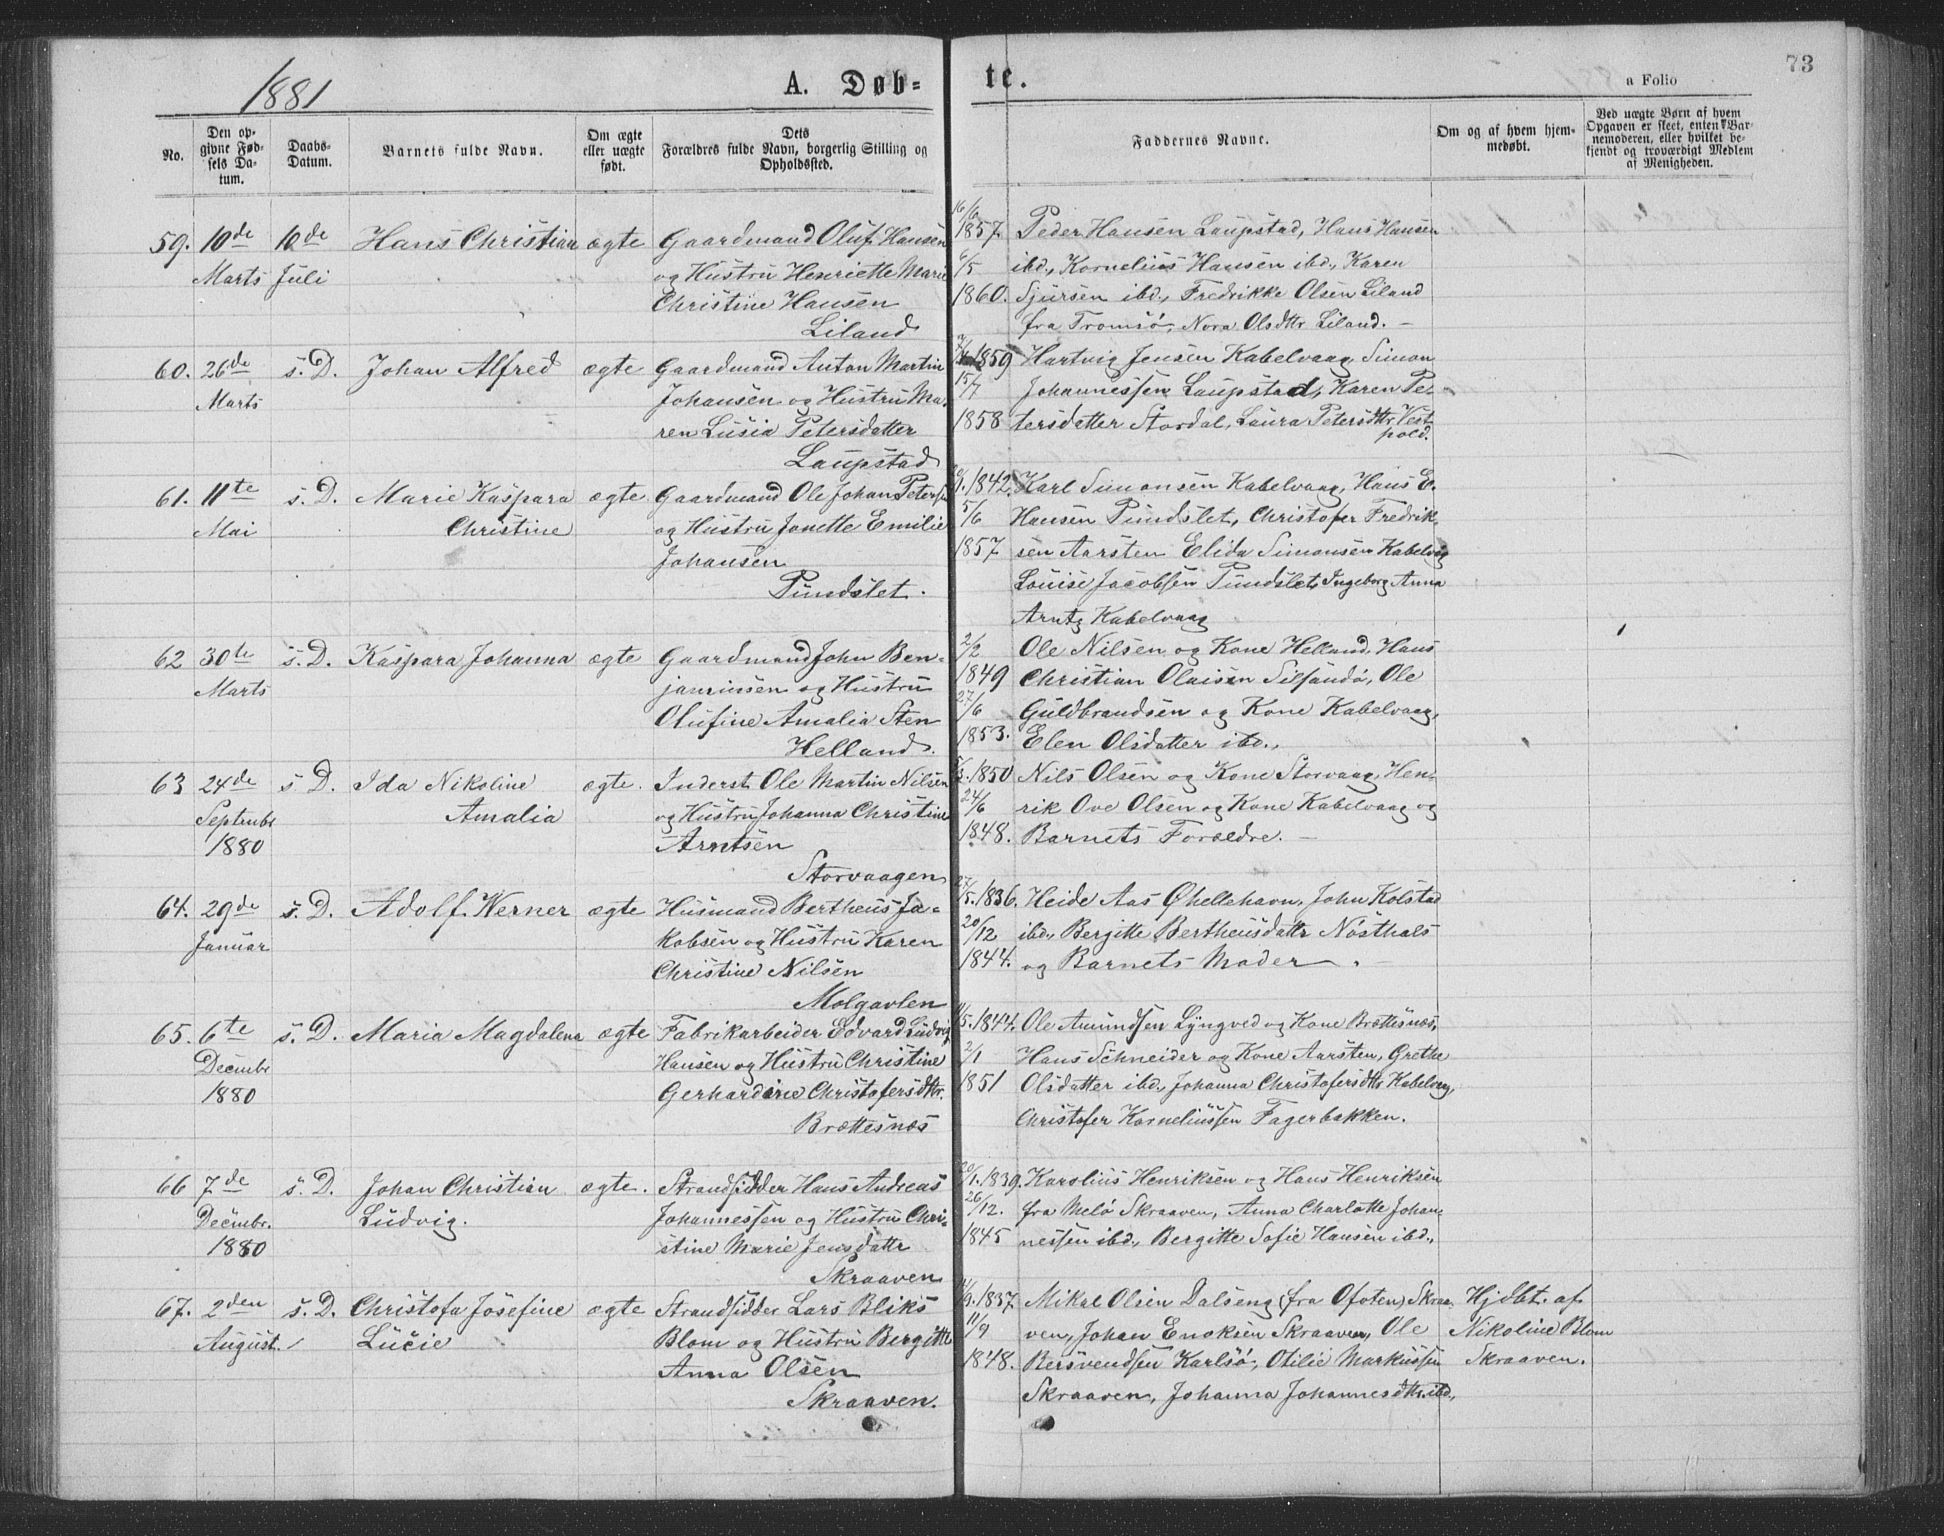 1881
A. Døb-
te.
73
a Folio
No.
Den op-
givne Fød-
sels Da-
tum.
Daabs-
Datum.
Barnets fulde Navn.
Om ægte
eller uægte
født.
Dets
Forældres fulde Navn, borgerlig Stilling og
Opholdssted.
Faddernes Navne.
Om og af hvem hjem-
medøbt.
Ved uægte Børn af hvem
Opgaven er skeet, enten Bar-
nemoderen, eller hvilket be-
kjendt og troværdigt Medlem
af Menigheden.
59. 10de 10de Hans Christian ægte Gaardmand Oluf Hansen
Marts Juli og Hustru Henriette Marie
Christine Hansen
Liland
16/6
1857. Peder Hansen Laupstad, Hans Hansen
6/5 ibd., Kornelius Hansen ibd., Karen
1860. Sjursen ibd., Fredrikke Olsen Liland
fra Tromsø, Nora Olsdttr Liland. –
60. 26de s. D. Johan Alfred ægte Gaardmand Anton Martin
Marts Johansen og Hustru Ma-
ren Lusia Petersdatter
Laupstad
1859 Hartvig Jensen Kabelvaag, Simon
15/7 Johannessen Laupstad, Karen Pe-
1858 tersdatter Stordal, Laura Petersdttr Vest-
pold.
61. 11te s. D. Marie Kaspara ægte Gaardmand Ole Johan Petersen
Mai Christine og Hustru Jonette Emilie
Johansen
Pundslet.
1842. Karl Simonsen Kabelvaag, Hans E.
5/6 Hansen Pundslet, Christofer Fredrik-
1857 sen Aarsten Elida Simonsen Kabelvåg
Louise Jacobsen Pundslet, Ingeborg Anna
Arntz Kabelvaag
62 30te s. D. Kaspara Johanna ægte Gaardmand John Ben-
Marts jaminsen og Hustru
Olufine Amalia Sten
Helland.
2/2 Ole Nilsen og Kone Helland, Hans
1849 Christian Olaisen Silsandø, Ole
27/6 Guldbrandsen og Kone Kabelvaag,
1853. Elen Olsdatter ibd.,
63 24de s. D. Ida Nikoline ægte. Inderst Ole Martin Nilsen
Septembr Amalia og Hustru Johanna Christine
1880 Arntsen
Storvaagen
1850 Nils Olsen og Kone Storvaag, Hen-
24/6 rik Ove Olsen og Kone Kabelvaag og
1848. Barnets Forældre. –
64. 29de s. D. Adolf Werner ægte Husmand Bertheus Ja-
Januar kobsen og Hustru Karen
Christine Nilsen
Molgavlen
27/5. 1836. Heide Aas Øhellehavn, John Kolstad
20/12 ibd., Bergitte Bertheusdattr Nøsthals
1844. og Barnets Moder. –
65. 6te s. D. Maria Magdalena ægte Fabrikarbeider Edvard Ludvig
Decembr Hansen og Hustru Christine
1880 Gerhardine Christofersdttr.
Brettesnæs
1844. Ole Amundsen Lyngved og Kone Brettesnæs,
2/1 Hans Schneider og Kone Aarsten, Grethe
1851 Olsdatter ibd., Johanna Christofersdttr Kabelvag,
Christofer Korneliussen Fagerbakken.
66 7de s. D. Johan Christian ægte. Strandsidder Hans Andreas
Decembr. Ludvig. Johannessen og Hustru Chri-
1880 stine Marie Jensdattr
Skraaven
20/1. 1839. Karolius Henriksen og Hans Henriksen
26/12. fra Melø Skraaven, Anna Charlotte Johan-
1845 nessen ibd., Bergitte Sofie Hansen ibd.,
67. 2den s. D. Christofa Josefine ægte Strandsidder Lars Bliks
August. Lucie Blom og Hustru Bergitte
Anna Olsen
Skraaven.
1837. Mikal Olsen Dalseng (fra Ofoten) Skraa- Hjdbt. af
11/9 ven, Johan Enoksen Skraaven, Ole Nikoline Blom
1848. Bersvendsen Karlsø, Otilie Markussen Skraaven.
Skraaven, Johanna Johannesdttr. ibd.,